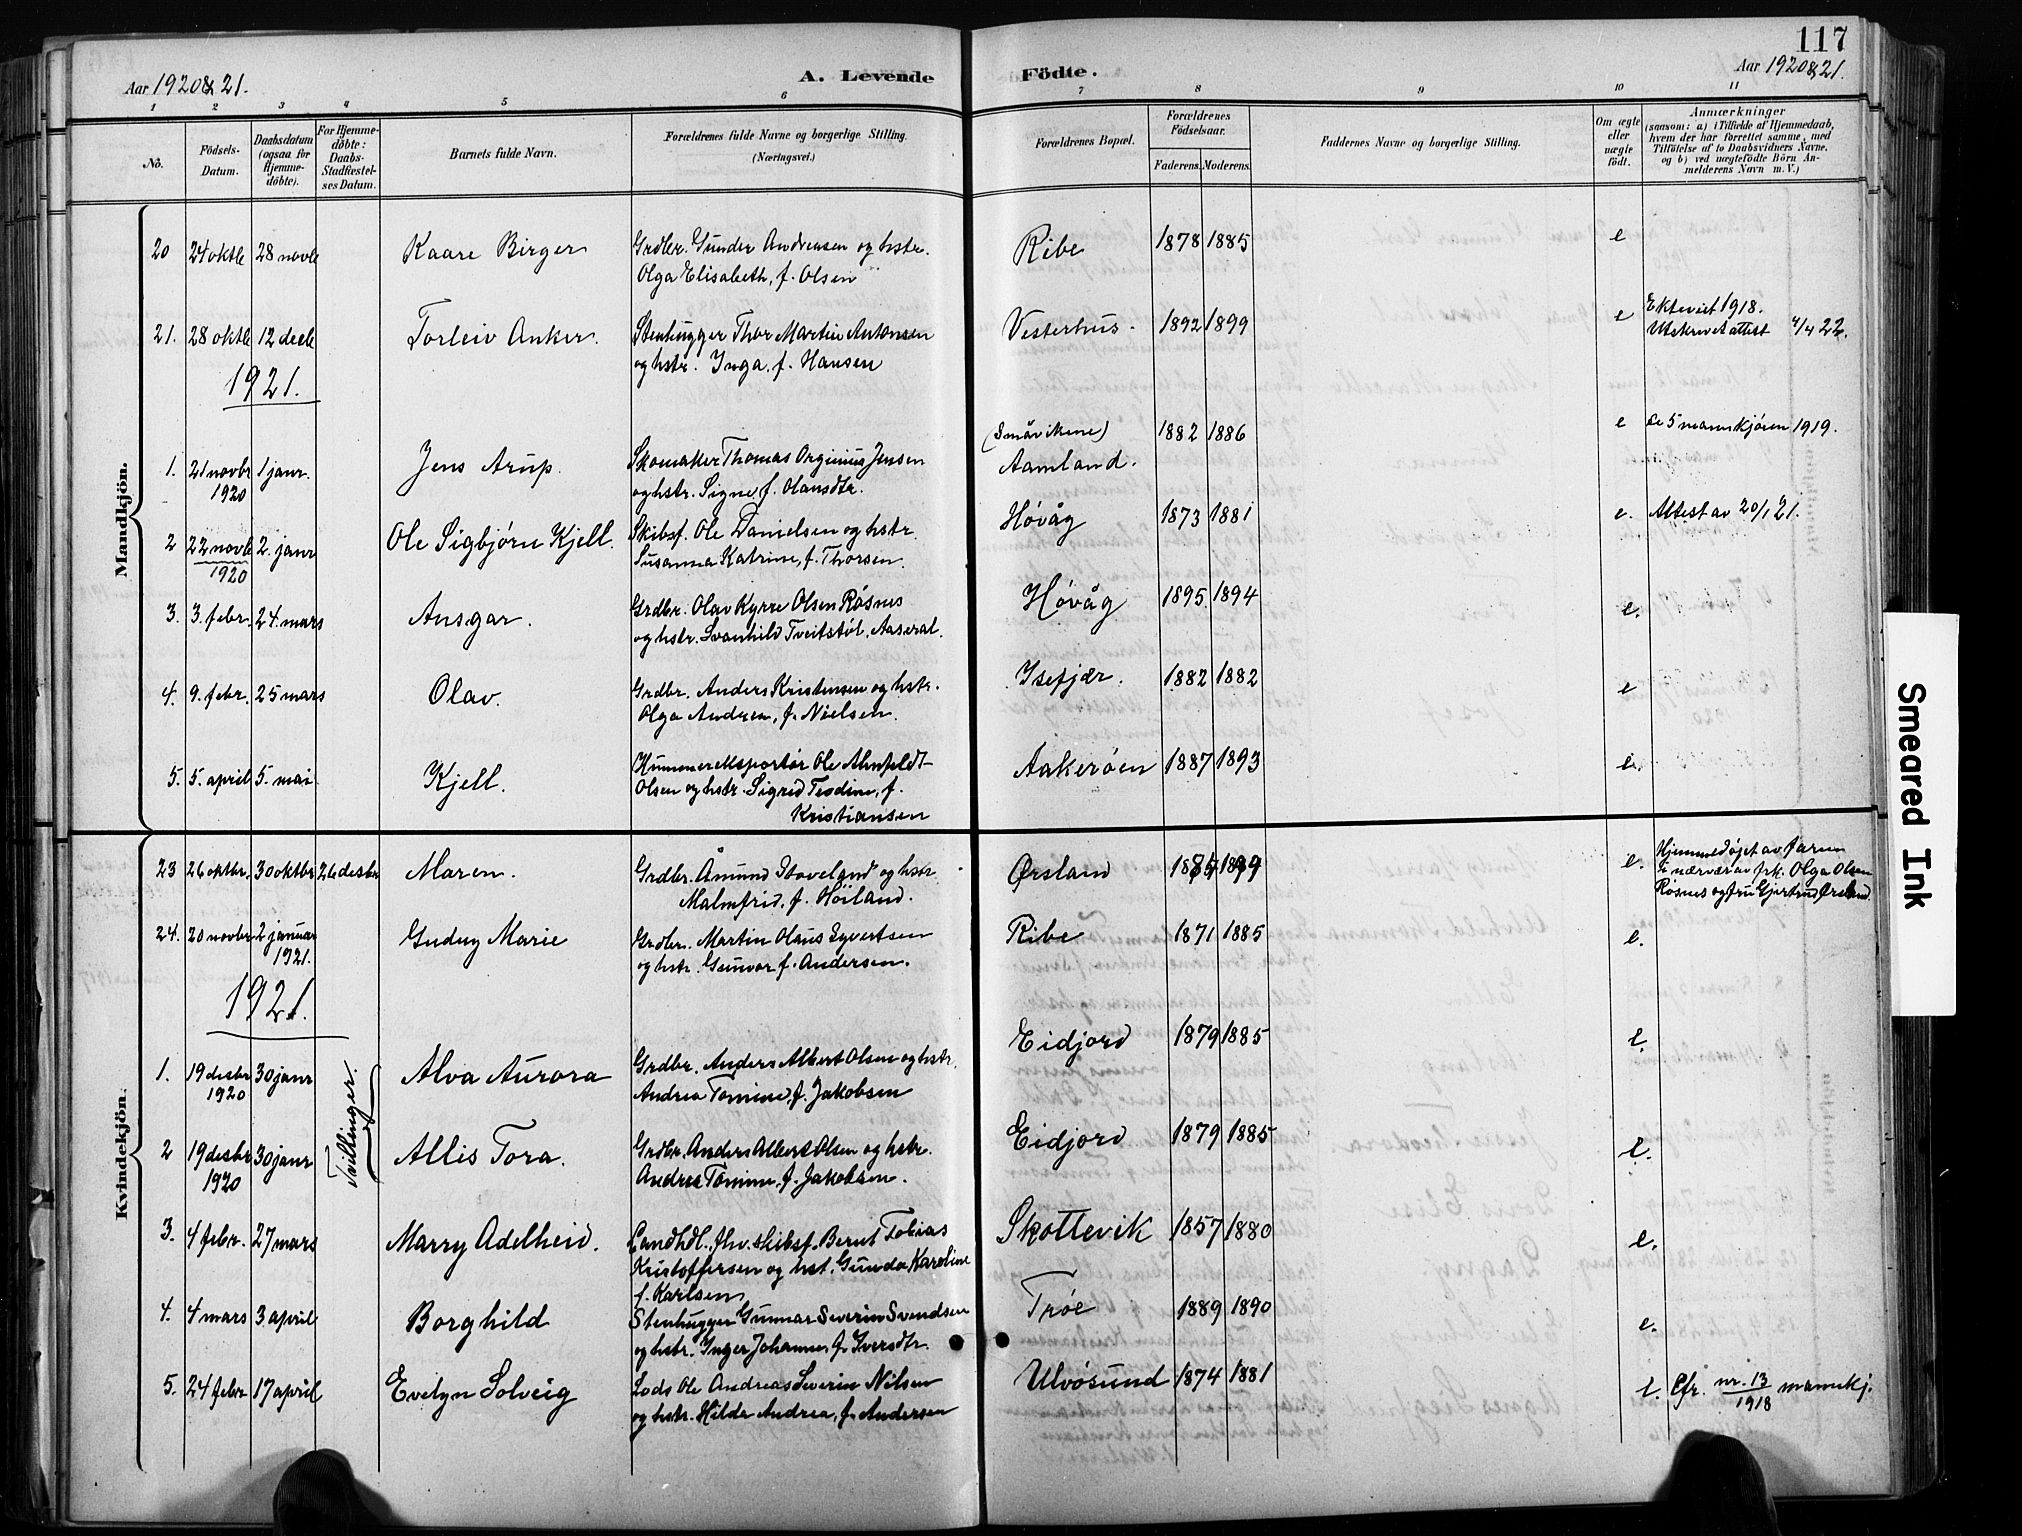 117
Aar 1920 & 21.
A. Levende
Födte.
Aar 1920 & 21.
1 2 3 4 5 6 7 8 9 10 11
Nô.
Födsels-Datum.
Daabsdatum (ogsaa for Hjemme-döbte).
For Hjemme-döbte: Daabs-Stadfæstel-ses Datum.
Barnets fulde Navn.
Forældrenes fulde Navne og borgerlige Stilling.
(Næringsvei.)
Forældrenes Bopæl.
Forældrenes Födselsaar.
Faderens. Moderens.
Faddernes Navne og borgerlige Stilling.
Om ægte eller uægte födt.
Anmærkninger
(saasom: a) i Tilfælde af Hjemmedaab,
hvem der har forrettet samme, med
Tilföielse af to Daabsvidners Navne,
og b) ved uægtefödte Börn An-
melderens Navn m. V.)
Mandkjön.
20 24 oktb 28 novb Kaare Birger Grdbr. Gunder Andreasen og hstr. Ribe 1878 1885 e
Olga Elisabeth, f. Olsen
21. 28 oktb 12 decb Torleiv Anker. Stenhugger Thor Martin Antonsen Vesterhus. 1892 1899 e Ekteviet 1918.
og hstr. Inga, f. Hansen Utskrevet attest 4/4 22.
1921.
1. 21 novbr 1 janr. Jens Arup. Skomaker Thomas Orginius Jensen (Småvikene) 1882 1886 e se 5 mannkjøn 1919.
1920 og hstr. Signe f. Olausdtr. Aamland.
2 22 novb 2. janr Ole Sigbjørn Kjell. Skibsf. Ole Danielsen og hstr. Høvåg 1873 1881 e. Attest av 20/1 21.
1920 Susanna Katrine, f. Thorsen.
3. 3. febr. 24. mars Ansgar. Grdbr. Olav Kyrre Olsen Røsnes Høvåg 1895. 1894 e.
og hstr. Svanhild Tveitstøl, Aaseral.
4. 9. febr. 25 mars Olav. Grdbr. Anders Kristensen og hstr. Isefjær. 1882 1882 e
Olga Andrea, f. Nielsen.
5. 5. april 5. mai Kjell. Hummereksportør Ole Ahnfeldt- Aakerøen 1887 1893 e.
Olsen og hstr. Sigrid Teodine, f.
Kristiansen
Kvindekjön.
23 26 oktbr. 30 oktbr 26 desbr Maren. Grdbr. Åmund Stoveland og hstr. Ørsland e. Hjemmedøpt av faren
Malmfrid, f. Høiland. i nærvær av frk. Olga Olsen
Røsnes og fru Gjertrud Ørsland.
24. 20 novbr 2 januar Gudny Marie Grdbr. Martin Olaus Syvertsen Ribe 1871 1885 e.
1921. og hstr. Gunvor f. Andersen.
1921.
1. 19 desbr 30 janr Tvillinger. Alva Aurora Grdbr. Anders Albert Olsen og hstr. Eidjord 1879 1885 e.
1920 Andrea Tomine, f. Jakobsen
2 19 desbr 30 janr Allis Tora. Grdbr. Anders Albert Olsen og hstr. Eidjord 1879 1885 e.
1920 Andrea Tomine, f. Jakobsen.
3. 4 febr. 27 mars Marry Adelheid. Landhdl. fhv. skibsf. Bernt Tobias Skottevik 1857 1880 e.
Kristoffersen og hst. Gunda Karoline
f. Karlsen
4. 4 mars 3. april Borghild Stenhugger Gunnar Severin Svendsen Trøe 1889 1890 e.
og hstr. Inger Johanne, f. Iversdtr.
5. 24 febr. 17 april Evelyn Solveig Lods Ole Andreas Severin Nilsen Ulvøsund 1874 1881 e. Cfr. nr. 13/1918 mannkj.
og hstr. Hilda Andrea, f. Andersen
Smeared Ink